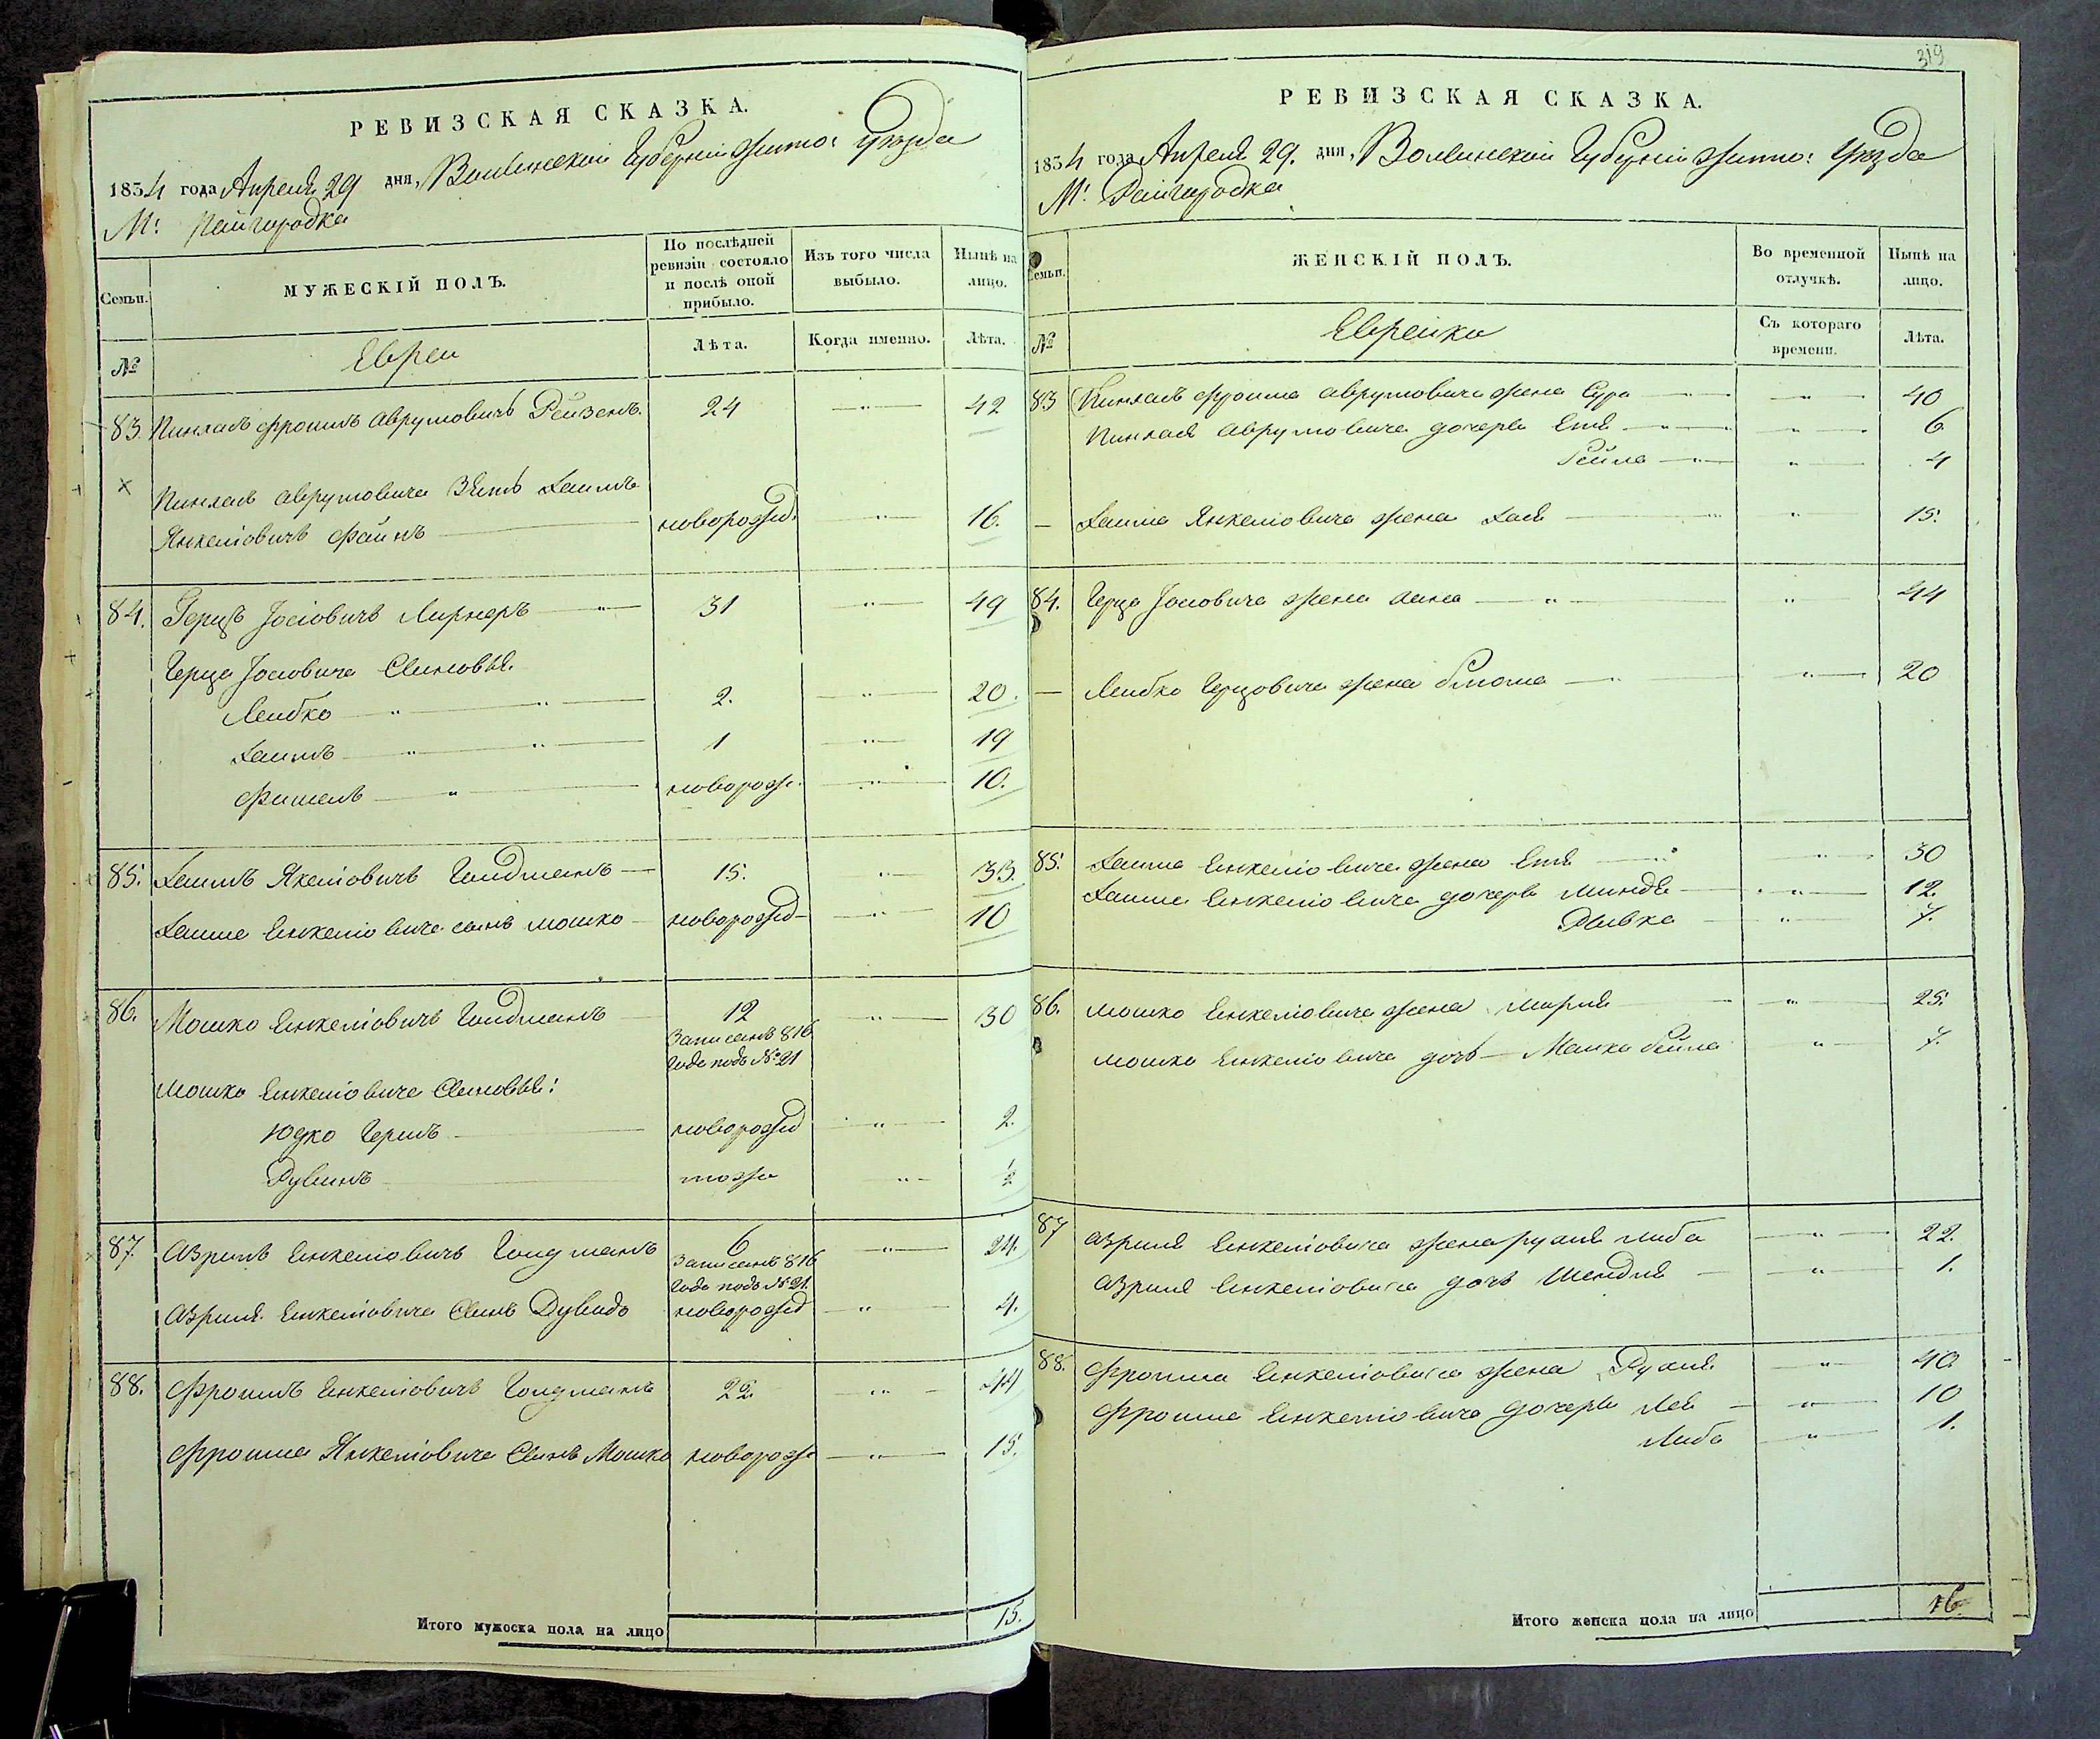 РЕВИЗСКАЯ СКАЗКА.
1834 года Апреля 29 дня, Волынской Губерніи Жито: Уѣзда
М: Райгородка
Семьи.
МУЖЕСКІЙ ПОЛЪ.
По послѣдней ревизіи состояло и послѣ оной прибыло.
Изъ того числа выбыло.
Нынѣ на лицо.
№
Евреи
Лѣта.
Когда именно.
Лѣта.
83. Пинхасъ Фроимъ Аврумовичъ Рейзенъ. 24 — " — 42
Пинхаса Аврумовича Зять Хаимъ
Янкеліовичъ Файнъ новорожд. " — 16.
84. Герцъ Іосіовичъ Лирнеръ — " — 31 " — 49
Герца Іосіовича Сыновья.
Лейбко — " — 2. — " — 20.
Хаимъ — " — 1 — " — 19
Фишель — " — новорож. — " — 10.
85. Хаимъ Якеліовичъ Гоидманъ — 15. " — 33.
Хаима Енкеліовича сынъ Мошко — новорожд — " — 10
86. Мошко Енкеліовичъ Гоидманъ 12 — " — 30
Записанъ 816
Года подъ № 21
Мошка Енкеліовича Сыновья:
Юдко Гершъ новорожд — " — 2.
Рувинъ тоже " — ½
87. Азрилъ Енкеліовичъ Гоидманъ 6 — " — 24.
Записанъ 816
Года подъ № 21.
Азриля Енкеліовича Сынъ Дувидъ новорожд — " — 4.
88. Фроимъ Енкеліовичъ Гоидманъ 22. — " — 44
Фроима Янкеліовича Сынъ Мошко новорож — " — 15.
Итого мужеска пола на лицо 15.
319
РЕВИЗСКАЯ СКАЗКА.
1834 года Апреля 29. дня, Волынской Губерніи Жито: Уѣзда
М: Райгородка
Семьи.
ЖЕНСКІЙ ПОЛЪ.
Во временной отлучкѣ.
Нынѣ на лицо.
№
Еврейки
Съ котораго времени.
Лѣта.
83 Пинхасъ Фроима Аврумовича жена Сура — " — 40
Пинхаса Аврумовича дочери Етя — " — 6.
Бейла — " — 4
— Хаима Янкеліовича жена Хая — " — 15.
84. Герца Іосіовича жена Хана — " — 44
— Лейбка Герцовича жена — " — 20
85. Хаима Енкеліовича жена Етя — " — 30
Хаима Енкеліовича дочери Миндя — " — 12.
Рывка — " — 7.
86. Мошка Енкеліовича жена Мирия — " — 25.
Мошка Енкеліовича дочь — Малка Бейла — " — 7.
87 Азриля Енкеліовича жена Рухля Либа — " — 22.
Азриля Енкеліовича дочь Шендля — " — 1.
88. Фроима Енкеліовича жена Рухля — " — 40
Фроима Енкеліовича дочери Лея — " — 10
Либа — " — 1.
Итого женска пола на лицо 16.